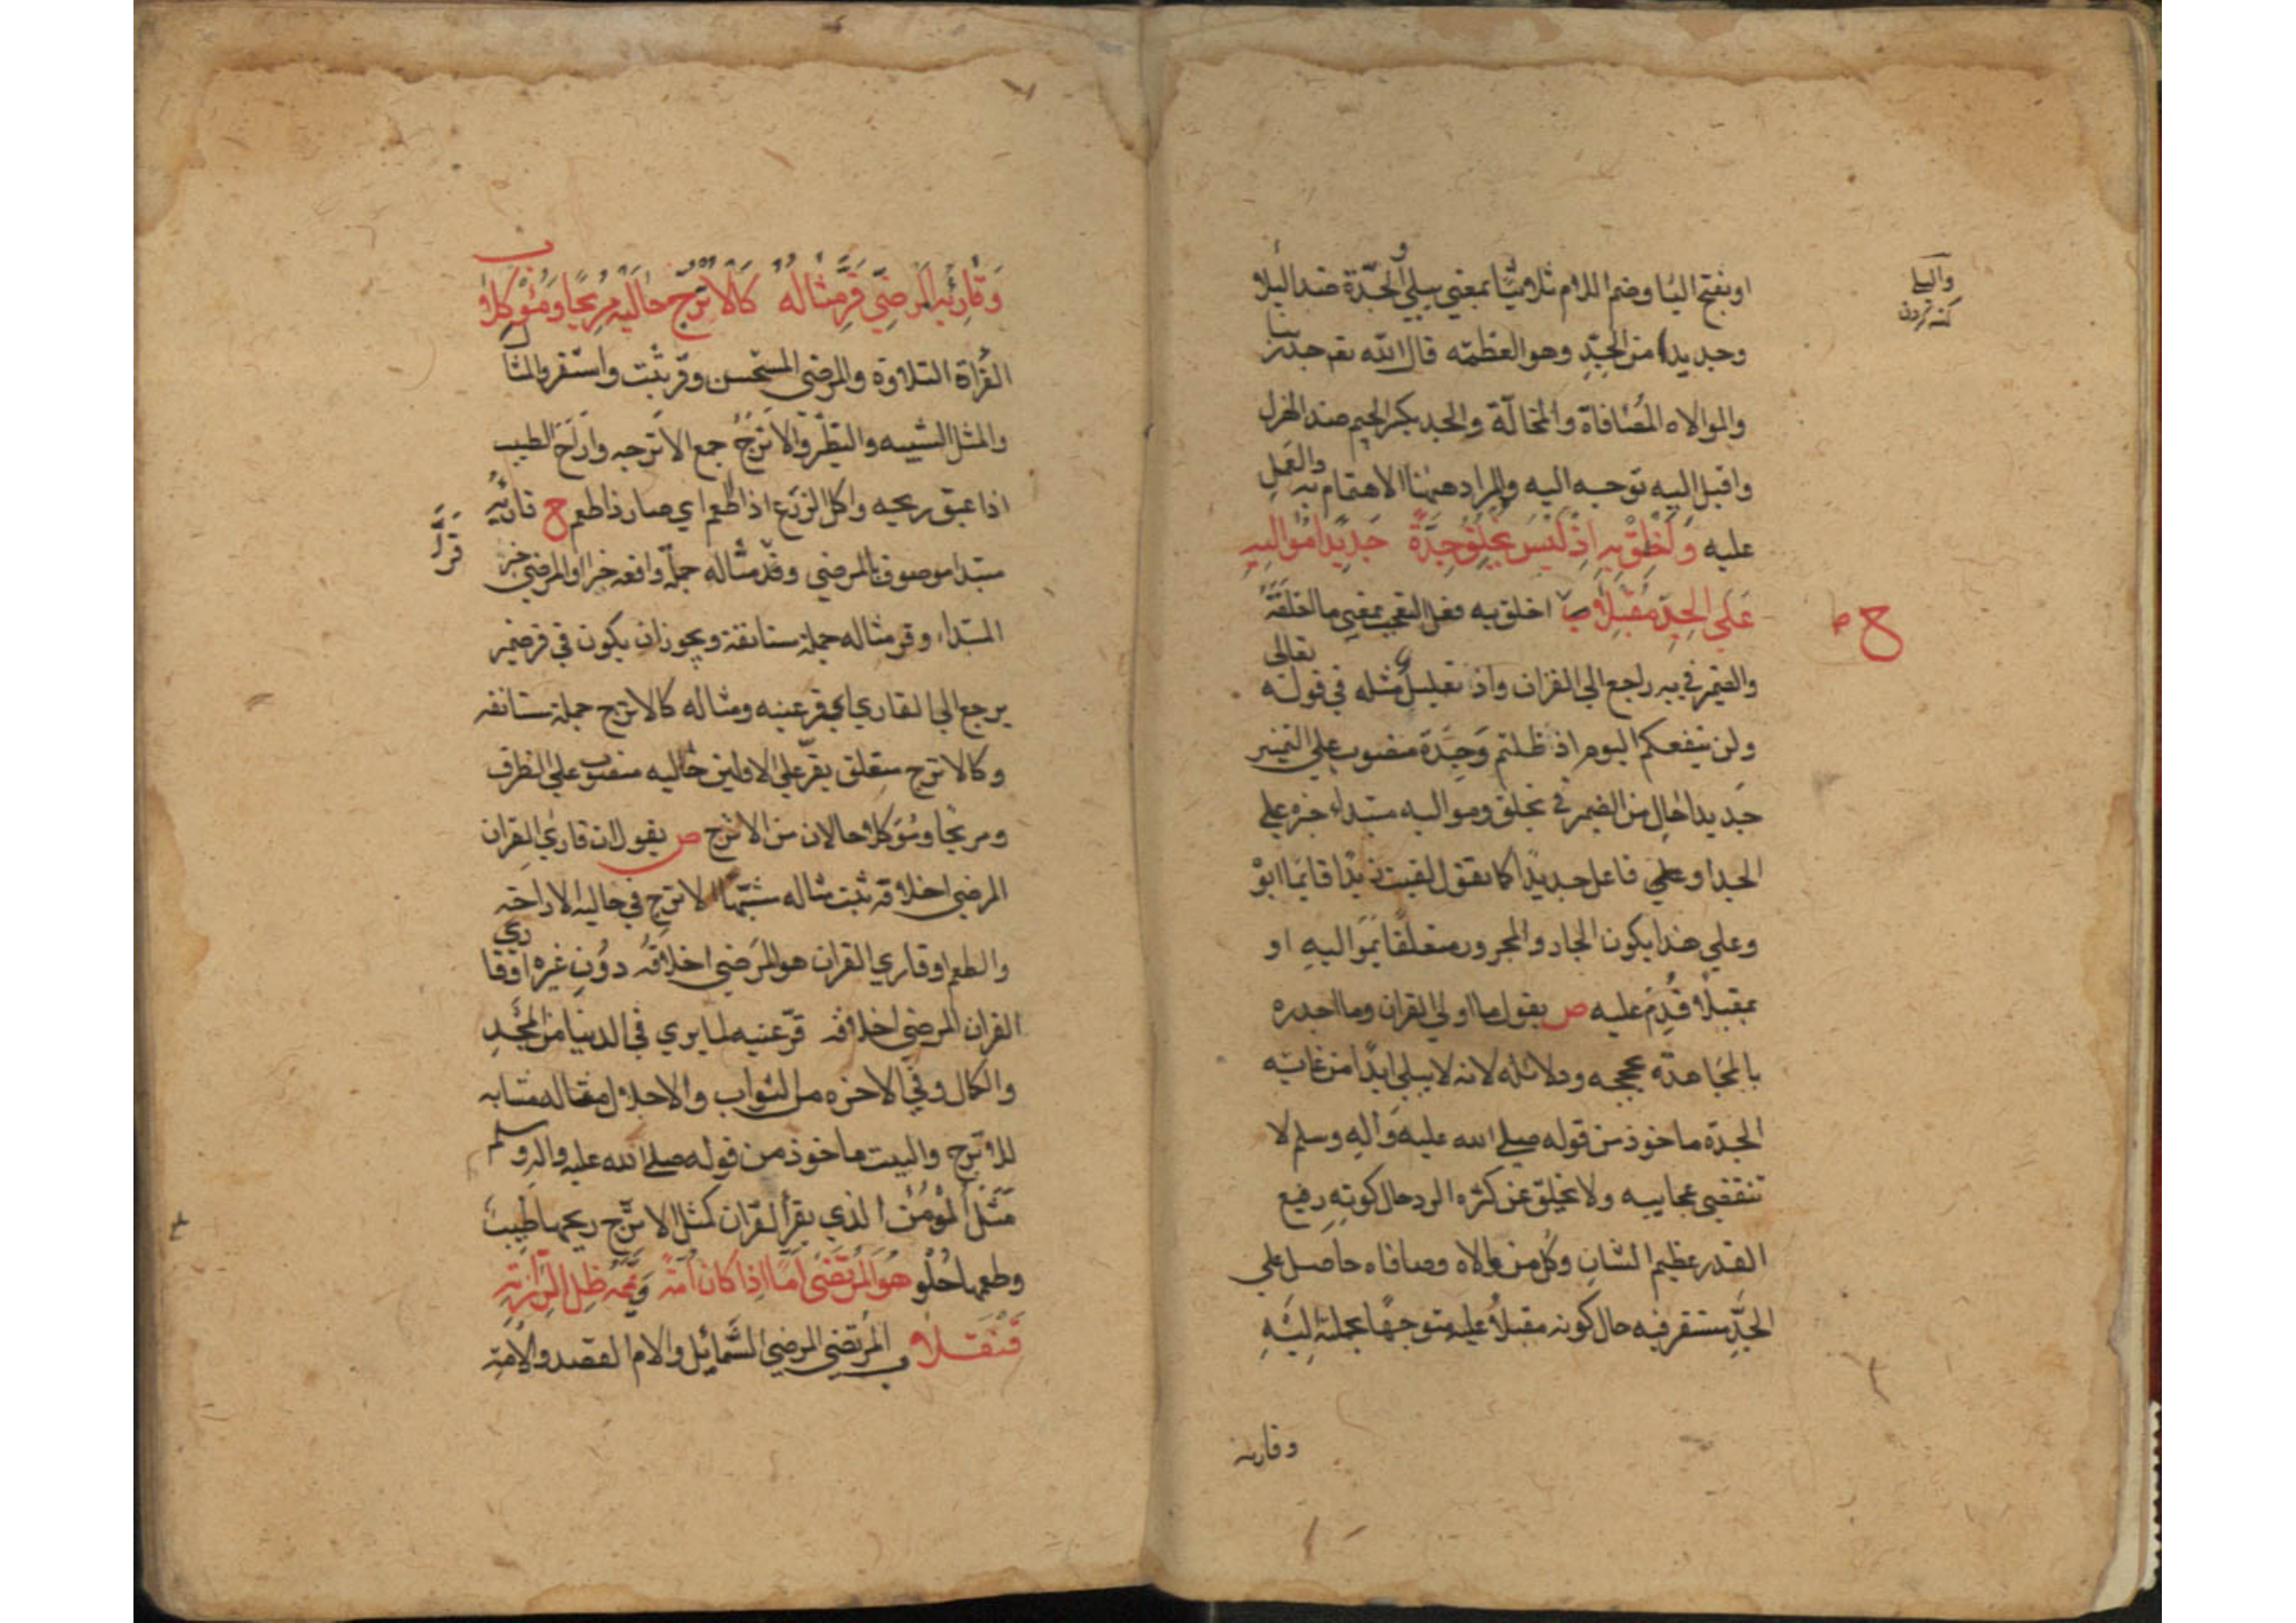 او بفتح اليا وضم اللام ثلاثيا بمعني يبلي الجدة ضد البلا
وجديدا من الجد وهو العظمة قال الله تع جد ربنا
والموالاه المصافاة والمخالّة والجد بكسر الجيم ضد الهزل
واقبل اليه توجه اليه والمراد ههنا الاهتمام به والعمل
عليه وَاَخْلِقْ بِهِ اِذْ لَيْسَ يَخْلُقُ جِدَّةً جَدِيْدًا مُوَالِيْهِ
عَلَى الْجِدِّ مُقْبِلَا ب اخلق به فعل التعجب بمعني ما اخلقه
والضمير في به راجع الي القران واذ تعليل مثله في قوله تعالى
ولن ينفعكم اليوم اذ ظلمتم وَجِدّة منصوب علي التميز
جَديدا حال من الضمير في يخلق ومواليه مبتداء خبره علي
الجد او علي فاعل جديدا كما يقول لقيت زيدا قايما ابوْ
وعلي هذا يكون الجار والمجرور متعلقا بمواليه او
بمقبلا قُدِّم عليه ص يقول ما اولي القران وما اجدره
بالمجاهدة بحججه ودلائله لانه لا يبلي ابدا من غاية
الجدة ماخوذ من قوله صلي الله عليه وآله وسلم لا
تنقضي عجايبه ولا يخلق عن كثره الرد حال كونه رفيع
القدر عظيم الشان وكل من والاه وصافاه حاصل علي
الجِدِّ مستقر فيه حال كونه مقبلا عليه متوجها بجملته اليه
وقاريه
والبلي
كهنه كردن
ح ص
وَقَارِئُهُ الْمَرْضِيُّ قَرَّ مِثَالُهُ كَالْاُتْرُجِّ حَالَيْهِ مُرِيْحًا وَمُوْكِلَا
ب
القراة التلاوة والمرضي المستحسن وقرّ ثبت واستقر والمثال
والمثل الشبيه والنظير والاترجّ جمع الاترجه واراح الطيب
اذا عبق ريحه واكل الزرع اذا اطعم اي صار ذا طعم ح قارئه
مبتدا موصوف بالمرضي وقر مثاله جملة واقعه خبرا او المرضي خبر
المبتداء وقر مثاله جملة مستانفة ويجوز ان يكون في قر ضمير
يرجع الي القاري اي قر عينه ومثاله كالاترج جملة مستانفه
وكالاترج متعلق بقرّ علي الاولين حاليه منصوب علي الظرف
ومريحا ومؤكلا حالان من الاترج ص يقول ان قاري القران
المرضي اخلاقه ثبت مثاله مشبها الاترج في حاليه الاراحة
والطعم او قاري القران هو المرضي اخلاقه دون غيره او قاري
القران المرضي اخلاقه قرّ عينه لما يري في الدنيا من المجدِ
والكمال وفي الاخره من الثواب والاجلال مثاله مشابه
للاترج والبيت ماخوذ من قوله صلي الله عليه واله وسلم
مَثَل المؤمن الذي يقرأ القران كمثل الاترّج ريحها طيبٌ
وطعمها حُلْو هُوَ الْمُرْتَضٰى اَمًّا اِذَا كَانَ اُمَّةً وَيَمَّمَهُ ظِلُّ الرَّزَانَةِ
قَنْقَلَا ب المُرتضي المرضي الشَّمائِل والام القصد والامة
قَرَأ